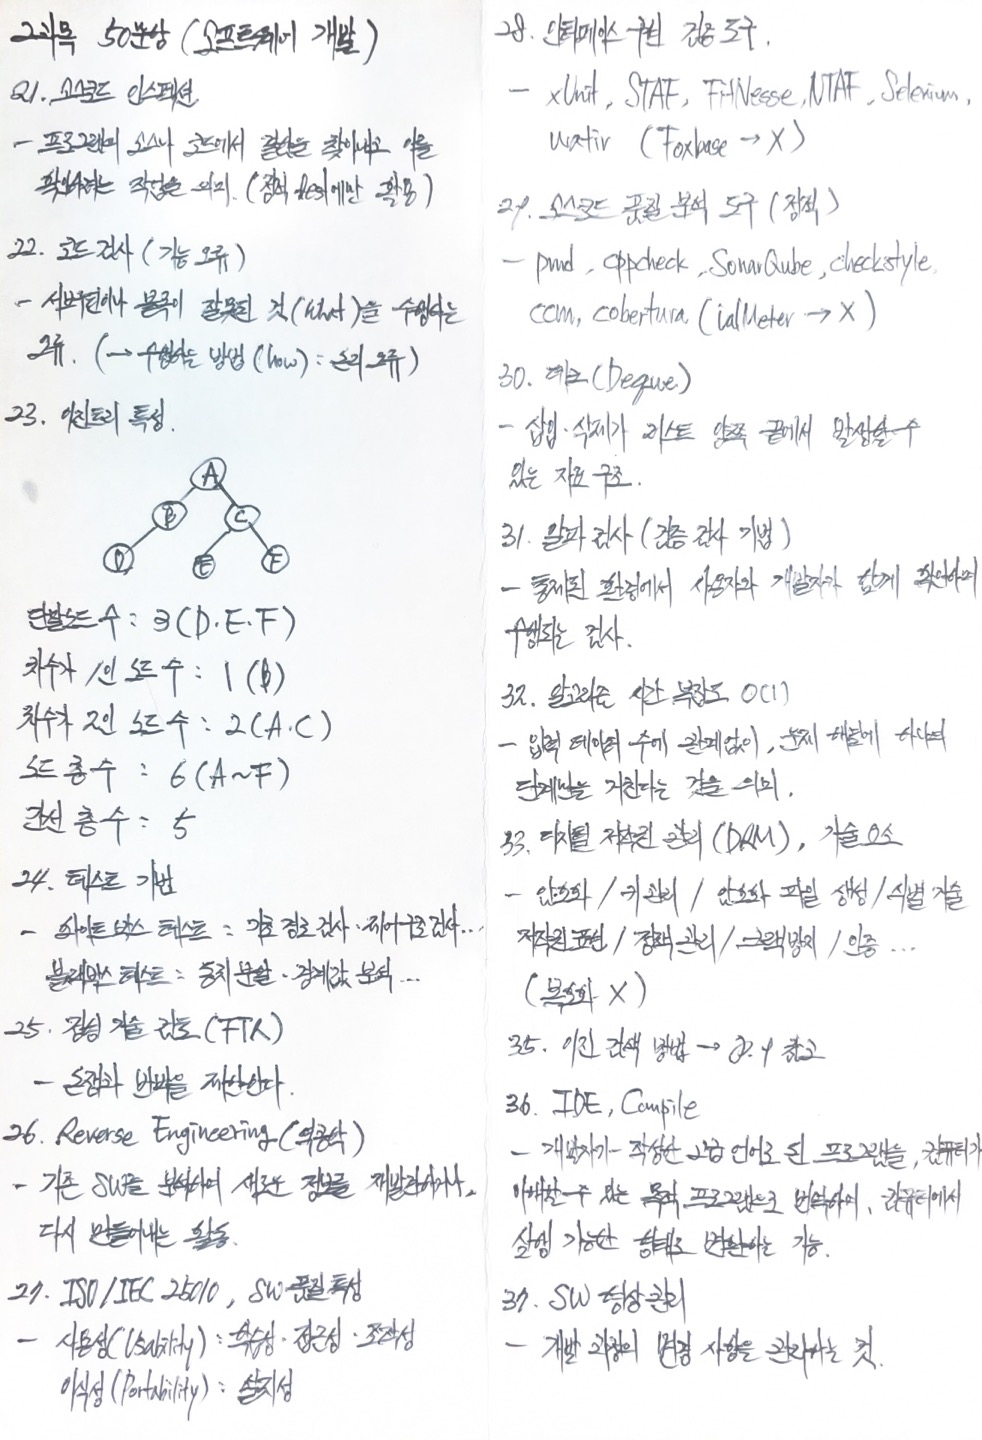 2과목 50문항 (소프트웨어 개발)
21. 소스코드 인스펙션
- 프로그램의 소스나 코드에서 결함을 찾아내고 이를
확인하려는 작업을 의미. (정적 test에만 활용)
22. 코드 검사 (기능 오류)
- 서브루틴이나 블록이 잘못된 것(what)을 수행하는
오류. (→ 수행하는 방법(how) : 논리 오류)
23. 이진트리 특성.
A
B C
D E F
단말노드 수 : 3 (D.E.F)
차수가 1인 노드 수 : 1 (B)
차수가 2인 노드 수 : 2 (A.C)
노드 총 수 : 6 (A~F)
간선 총 수 : 5
24. 테스트 기법
- 화이트박스 테스트 : 기초 경로 검사 · 제어구조 검사...
블랙박스 테스트 : 동치 분할 · 경계값 분석...
25. 정형 기술 검토 (FTR)
- 논쟁과 반박을 제한한다.
26. Reverse Engineering (역공학)
- 기존 SW를 분석하여 새로운 정보를 재발견하거나,
다시 만들어내는 활동.
27. ISO/IEC 25010, SW 품질 특성
- 사용성(Usability) : 학습성 · 접근성 · 조작성
이식성(Portability) : 설치성
28. 인터페이스 구현 검증 도구.
- xUnit, STAF, FitNesse, NTAF, Selenium,
watir (Foxbase → X)
29. 소스코드 품질 분석 도구 (정적)
- pmd, cppcheck, SonarQube, checkstyle,
ccm, cobertura (ialMeter → X)
30. 데크 (Deque)
- 삽입 · 삭제가 리스트 양쪽 끝에서 발생할 수
있는 자료 구조.
31. 알파 검사 (검증 검사 기법)
- 통제된 환경에서 사용자와 개발자가 함께 확인하며
수행되는 검사.
32. 알고리즘 시간 복잡도 O(1)
- 입력 데이터 수에 관계없이, 문제 해결에 하나의
단계만을 거친다는 것을 의미.
33. 디지털 저작권 관리 (DRM), 기술 요소
- 암호화 / 키 관리 / 암호화 파일 생성 / 식별 기술
저작권 표현 / 정책 관리 / 크랙 방지 / 인증 ...
(복호화 X)
35. 이진 검색 방법 → P.4 참고
36. IDE, Compile
- 개발자가 작성한 고급 언어로 된 프로그램을, 컴퓨터가
이해할 수 있는 목적 프로그램으로 번역하여, 컴퓨터에서
실행 가능한 형태로 변환하는 기능.
37. SW 형상 관리
- 개발 과정의 변경 사항을 관리하는 것.